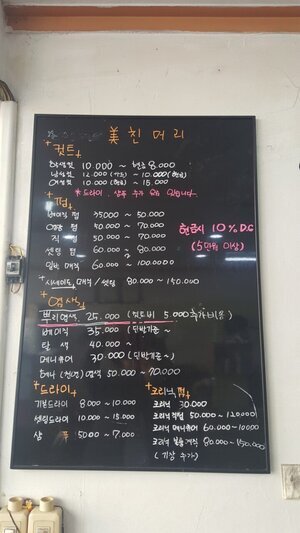 美친머리
컷트
학생컷 10.000 ~ 현금 8.000
남성컷 12.000 (카드) ~ 10.000 (현금)
여성컷 10.000 (현금) ~ 15.000
* 드라이. 샴푸 추가 요금 있습니다
펌
베이직 펌 35000 ~ 50.000
열펌 50.000 ~ 70.000
직펌 50.000 ~ 70.000
셋팅펌 60.000 ~ 80.000
일반 매직 60.000 ~ 100.000
현금시 10% D.C
(5만원 이상)
시세이도 매직 / 셋팅 80.000 ~ 150.000
염색
뿌리염색 25.000 (컷트비 5.000 추가비용)
베이직 35.000 (단발기준~)
탈색 40.000 ~
매니큐어 30.000 (단발기준~)
헤나 (천연) 염색 50.000 ~ 70.000
드라이
기본드라이 8.000 ~ 10.000
셋팅드라이 10.000 ~ 15.000
샴푸 5000 ~ 7.000
크리닉 펌
크리닉 30.000
크리닉직펌 50.000 ~ 120.000
크리닉 매니큐어 60.000 ~ 10000
크리닉 볼륨 매직 80.000 ~ 150.000
(기장 추가)